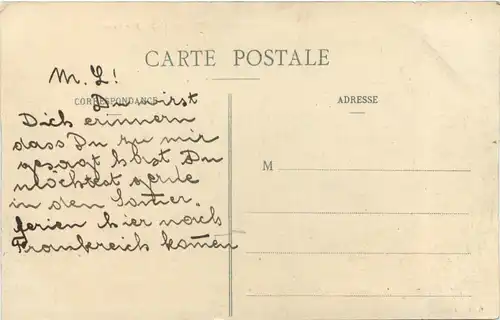 CARTE POSTALE
CORRESPONDANCE
ADRESSE
M
M. L!
Du wirst
Dich erinnern
dass Du zu mir
gesagt hast Du
möchtest gerne
in den Som̅er-
ferien hier nach
Frankreich kom̅en